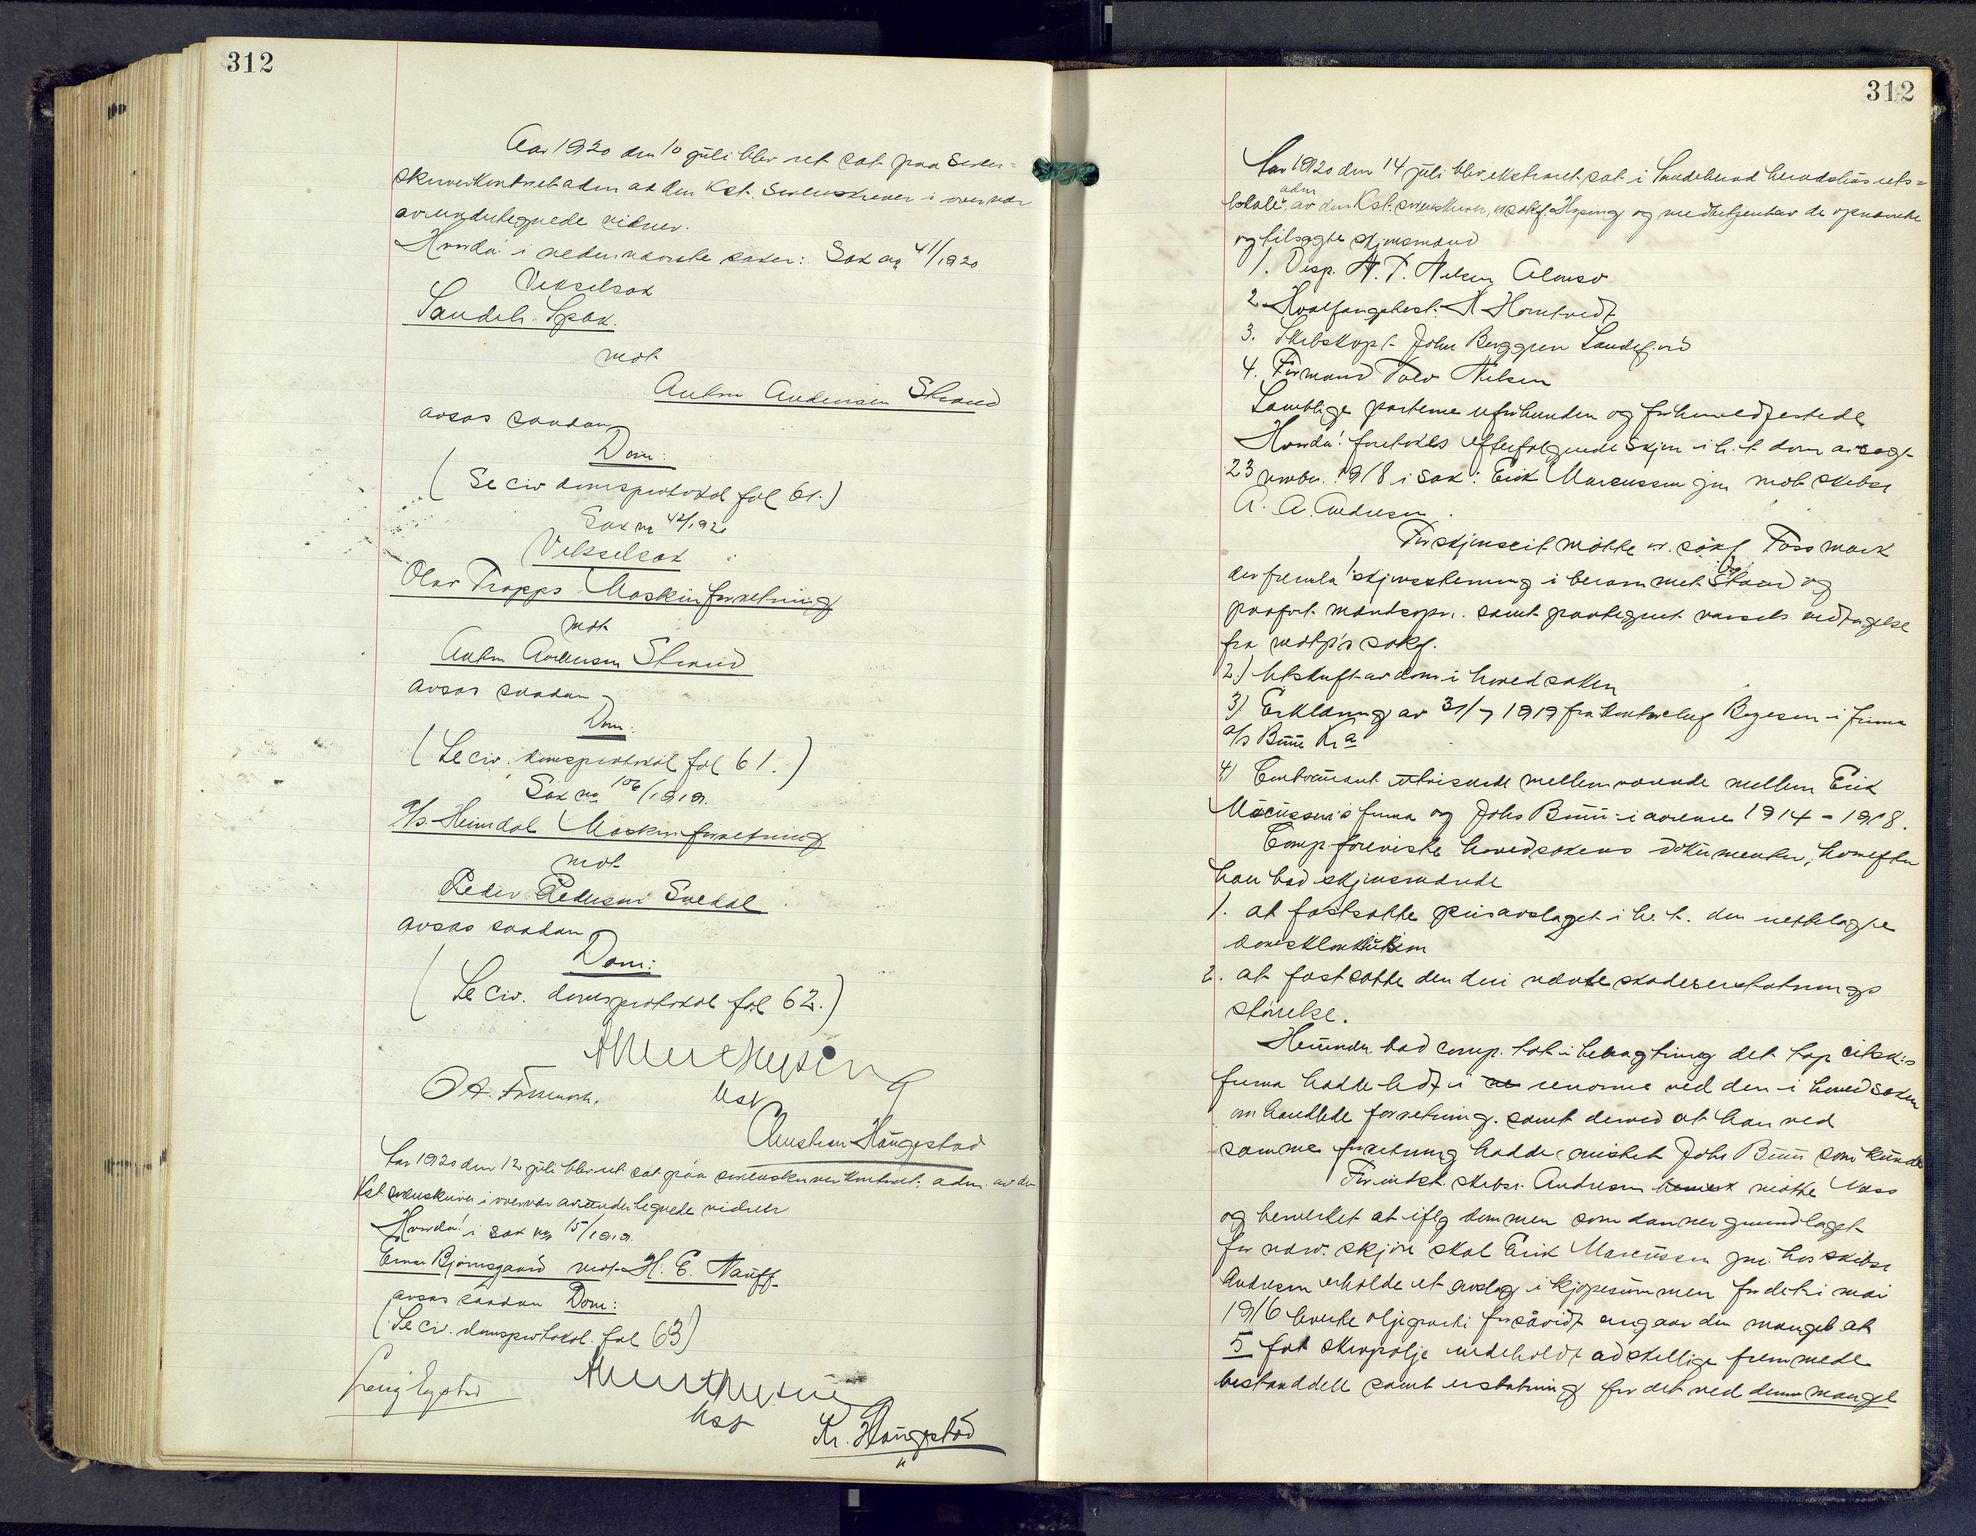 312
Aar 1920 den 10 juli blev ret sat paa Soren-
skriverkontoret adm av den Kst. Sorenskriver i overvær
av undertegnede vidner.
Hvorda: i nedennævnte saker: Sak nr 41/1920
Vekselsak
Sandeh. Spbk.
mot
Anton Andersen Strand
avsas saadan
Dom:
(Se civ domsprotokol fol 61.)
Sak nr 42/1920
Vekselsak
Olav Trapps Maskinforretning
mot
Anton Andersen Strand
avsas saadan
Dom:
(Se civ. domsprotokol fol 61.)
Sak no 106/1919.
A/s Heimdal Maskinforretning
mot
Peder Pedersen Svedal
avsas saadan
Dom:
(Se civ. domsprotokol fol 62.)
Kst
Christian Haugestad
Aar 1920 den 12 juli blev ret sat paa sorenskriverkontoret adm. av den
Kst sorenskriver i overvær av undertegnede vidner
Hvorda: i sak no 15/1919.
Einar Bjørnsgaard mot H. E. Nauff
avsas saadan Dom:
(Se civ. domsprotokol. fol 63)
Kst
Kr. Haugestad
312
Aar 1920 den 14 juli blev ekstraret sat i Sandeherred herredshus rets-
lokale adm av den Kst. sorenskriver, o.r.sakf. Hysing og medbetjent av de opnævnte
og tilsagte skjønsmænd
1. Disp. A. T. Nelsen Alonso
2. Hvalfangstbest. N Horntvedt
3. Skibskapt. John Berggren Sandefjord
4. Formand Tolv Nilsen
Samtlige parterne uforbunden og forhen edfestede
Hvorda: foretokes efterfølgende skjøn i h. t. dom avsagt
23 novbr. 1918 i sak: Erik Marcussen jn mot skibsr
A. A. Andresen.
For skjønscit møtte o.r. sakf Fossmark
der fremla 1. skjønsstevning i berammet stand og
paaført mandsopn. samt paategnet varsels vedtagelse
fra motp's sakf.
2.) Utskrift av dom i hovedsaken
3) Erklæring av 31/7 1919 fra kontorchef Boyesen i firma
A/s Buue Kra
4) Contocurant utvisende mellemværende mellem Erik
Marcussen's firma og Johs Buuu i aarene 1914 - 1918.
Comp. foreviste hovedsakens dokumenter, hvorefter
han bad skjønsmændene
1. at fastsætte prisavslaget i h. t. den vedtagne
domskonklusion
2. at fastsætte den deri nævnte skadeserstatnings
størrelse.
Herunder bad comp. tat i betragtning det tap citsk:s
firma hadde lidt i renomé ved den i hovedsaken
omhandlede forretning, samt derved at han ved
samme forretning hadde mistet Johs Buuu som kunde
For indst. skibsr. Andresen møtte Vass
og bemerket at iflg dommen som danner grundlaget
for nærv. skjøn skal Erik Marcussen jnr. hos skibsr
Andresen erholde et avslag i kjøpesummen for det i mai
1916 leverte oljeparti forsåvidt angaar den mangel at
5 fat skrapolje indeholdt adskillige fremmede
bestanddele samt erstatning for det ved denne mangel